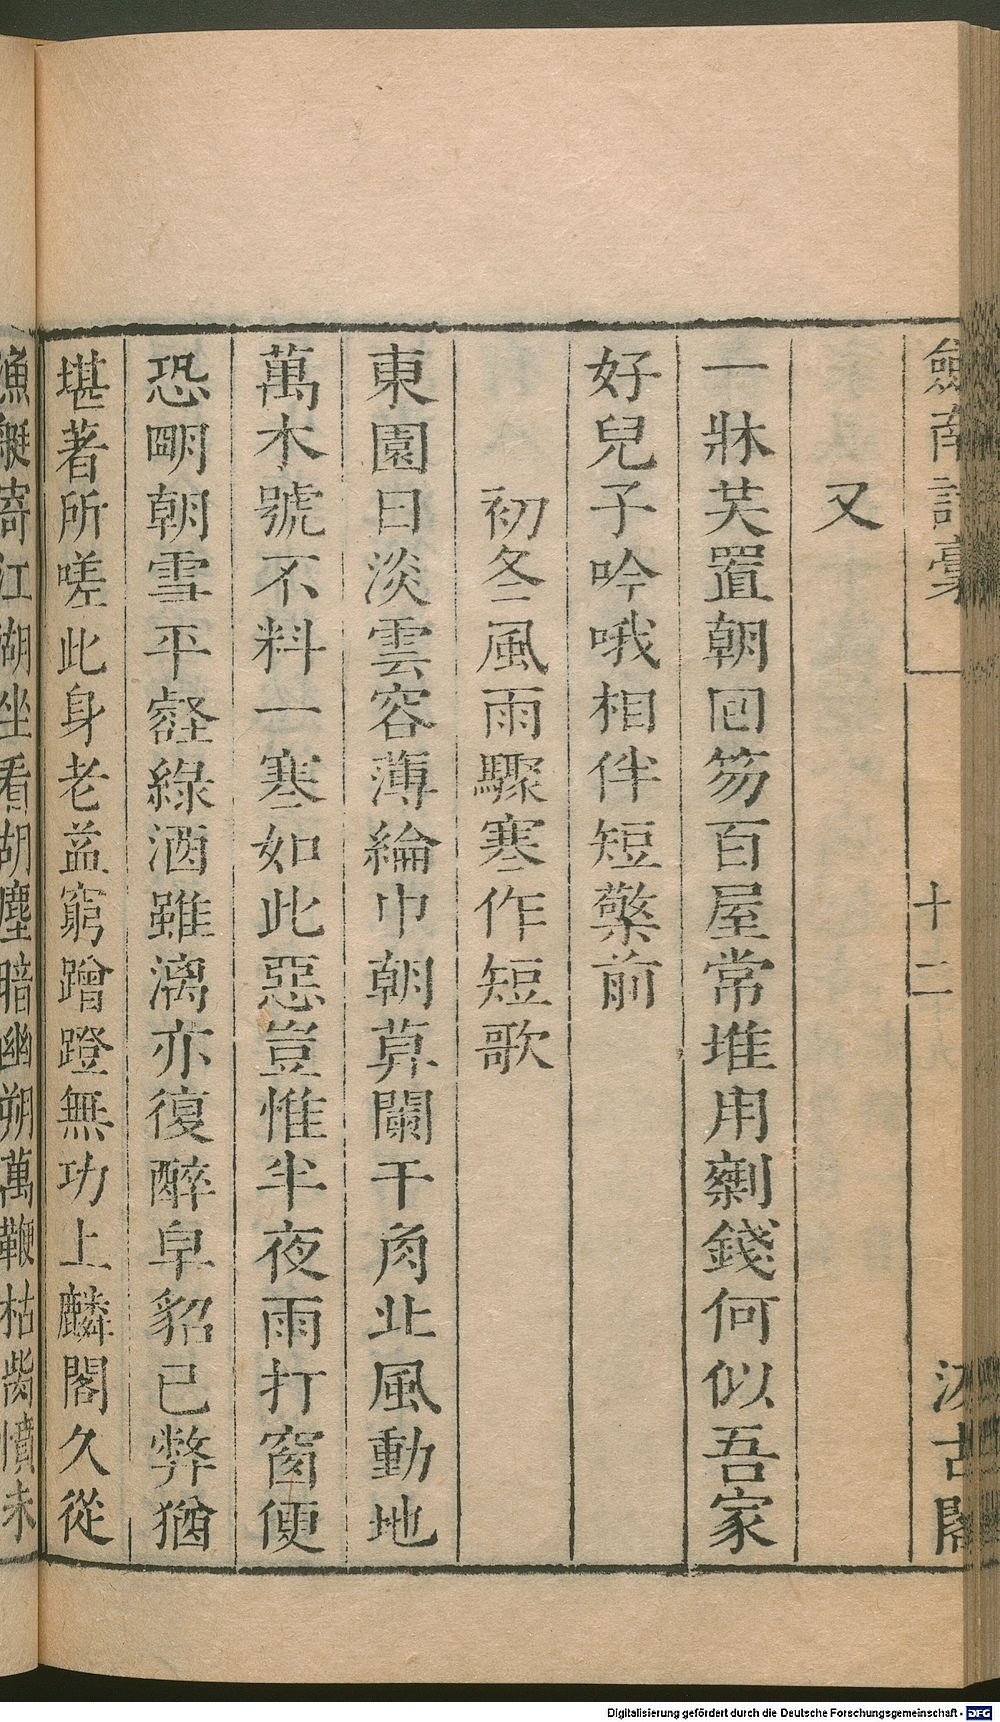 劒南詩藁 十二 汲古閣
又
一牀芙置朝回笏百屋常堆用剩錢何似吾家
好兒子吟哦相伴短檠前
初冬風雨驟寒作短歌
東園日淡雲容薄綸巾朝莫闌干角北風動地
萬木號不料一寒如此惡豈惟半夜雨打窗便
恐明朝雪平壑綠酒雖漓亦復醉皁貂已弊猶
堪著所嗟此身老益窮蹭蹬無功上麟閣久從
漁艇寄江湖坐看胡塵暗幽朔萬鞭枯胔憤未
Digitalisierung gefördert durch die Deutsche Forschungsgemeinschaft - DFG